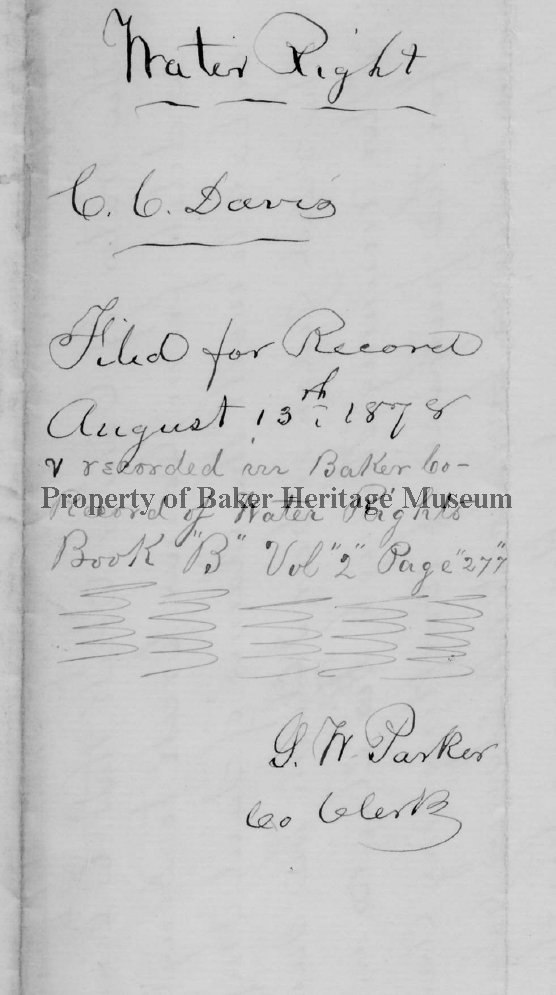 Water Right
C. C. Davis
Filed for Record
August 13th 1878
& recorded in Baker Co-
Property of Baker Heritage Museum
Record of Water Rights
Book "B" Vol "2" Page "277"
G. W. Parker
Co Clerk